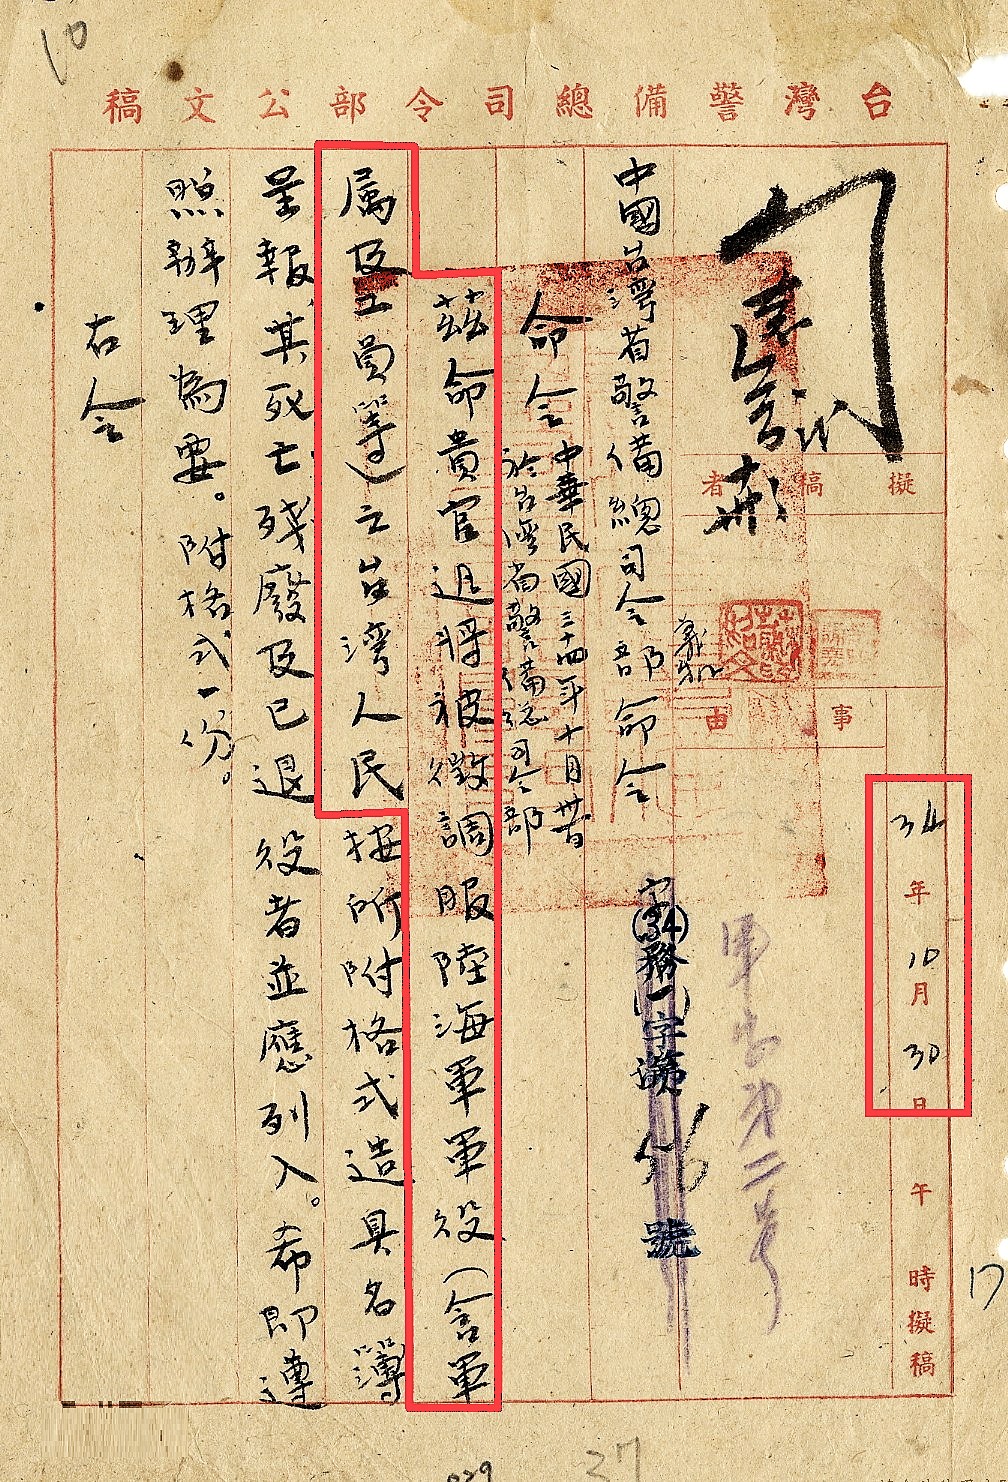 10
台灣警備總司令部公文稿
34年10月30日午時擬稿
17
擬稿者
事由
中國台灣省警備總司令部命令
字(34)務(一)字第 號
命令
中華民國三十四年十月卅日
於台灣省警備總司令部
茲命貴官迅將被徵調服陸海軍軍役(含軍
屬及工員等)之台灣人民按所附格式造具名簿
呈報,其死亡殘廢及已退役者並應列入。希即遵
照辦理為要。附格式一份。
右令
27